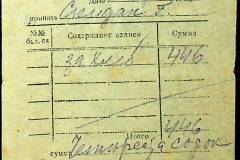 Дата
принять Скидан Г.
№№ Содержание записи Сумма
бал. сч
за хлеб 446
Итого 446
сумма Четыреста сорок